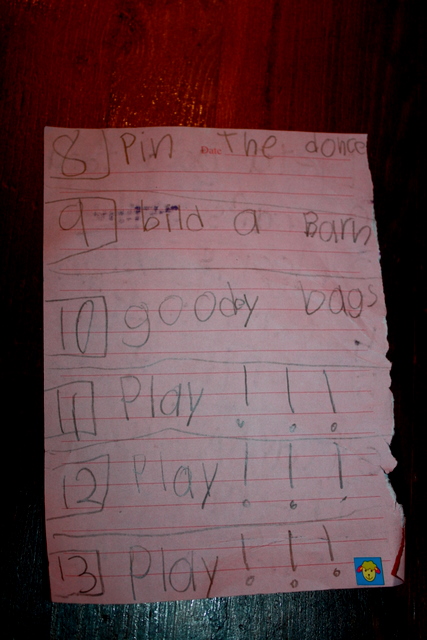 8 Pin The donce
Date
9 bild a Barn
10 goody bags
11 Play !!!
12 Play !!!
13 Play !!!